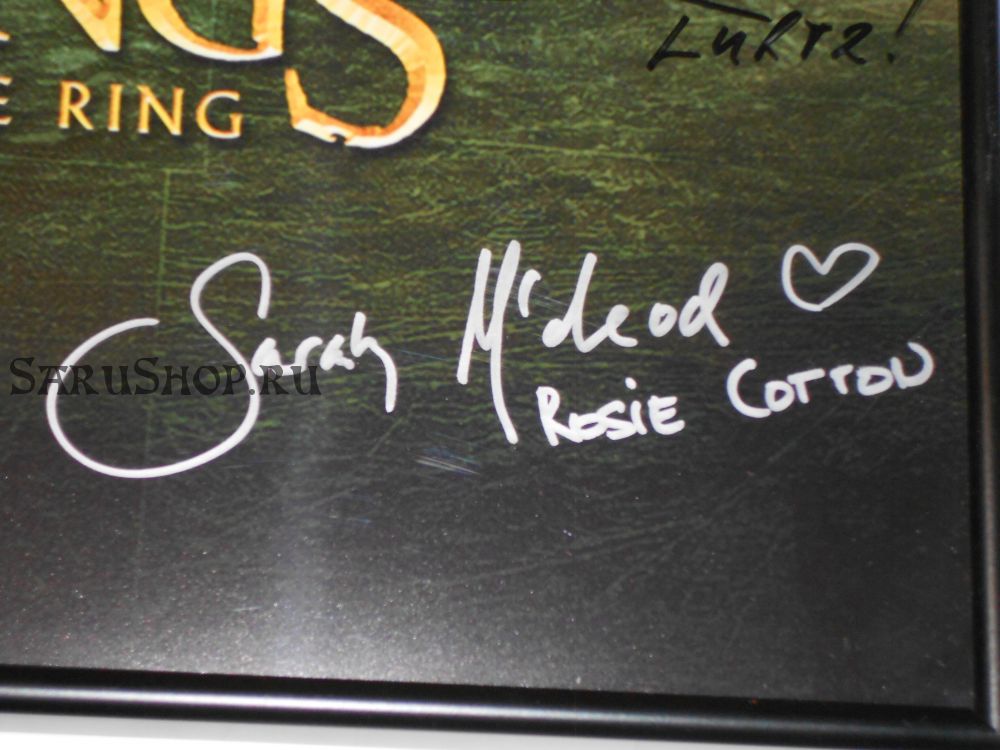 NGS
E RING
Lurtz!
Sarah McLeod ♡
Rosie Cotton
SaruShop.ru